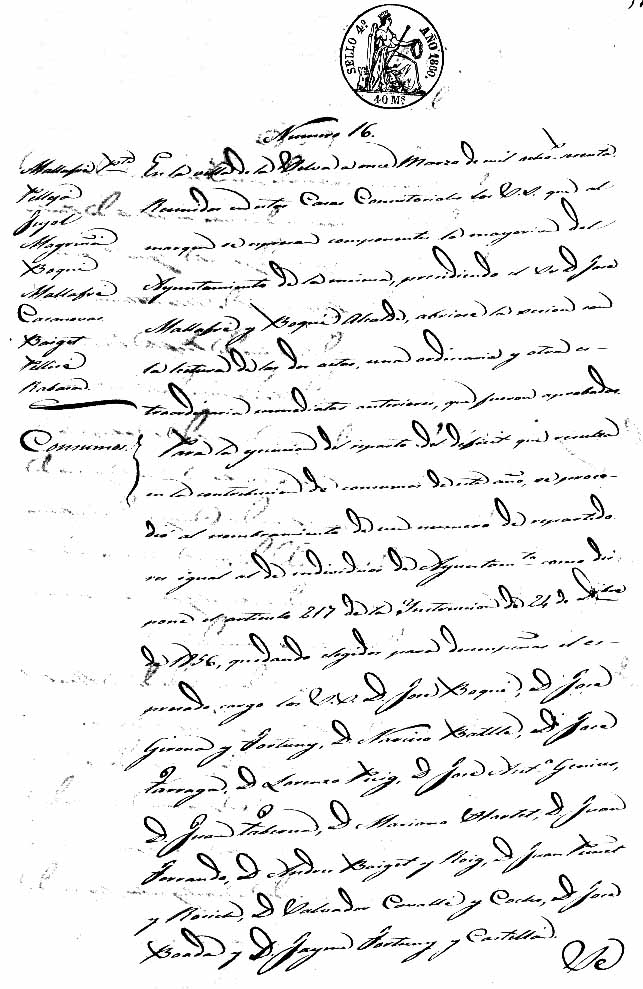 SELLO 4º AÑO 1860.
40 Mˢ
Numero 16.
Mallafré Pte
Pellejà
Jujol
Magriñá
Boqué
Mallafré
Casanovas
Baiget
Rabasa
En la villa de la Selva a once Marzo de mil ocho. sesenta
Reunidos en estas Casas Consistoriales los S.S. que al
margen se espresan componentes la mayoria del
Ayuntamiento de la misma, presidiendo el Sr. D. José
Mallafré y Boqué Alcalde, abriose la sesion con
la lectura de las dos actas, una ordinaria y otra es-
traordinaria inmediatas anteriores, que fueron aprobadas.
Consumos.
Para la ejecucion del reparto del deficit que resulta
en la contribucion de consumos de este año, se proce-
dió al nombramiento de un numero de repartido-
res igual al de individuos de Ayuntamto como dis
pone el articulo 217 de la Instruccion de 24 de Dbre
de 1856, quedando elegidos para desempeñar el es-
presado cargo los S.S. D. José Boqué, D. José
Girona y Fortuny, D. Narciso Batlle, D. José
Tarraga, D. Lorenzo Puig, D. José Anto
D. Juan Taberna, D. Mariano D. Juan
Ferrando, D. Andres Baiget y Roig, D. Juan
y D. Salvador y D. José
Boada y D. Jayme Fortuny y Castelló.
Se